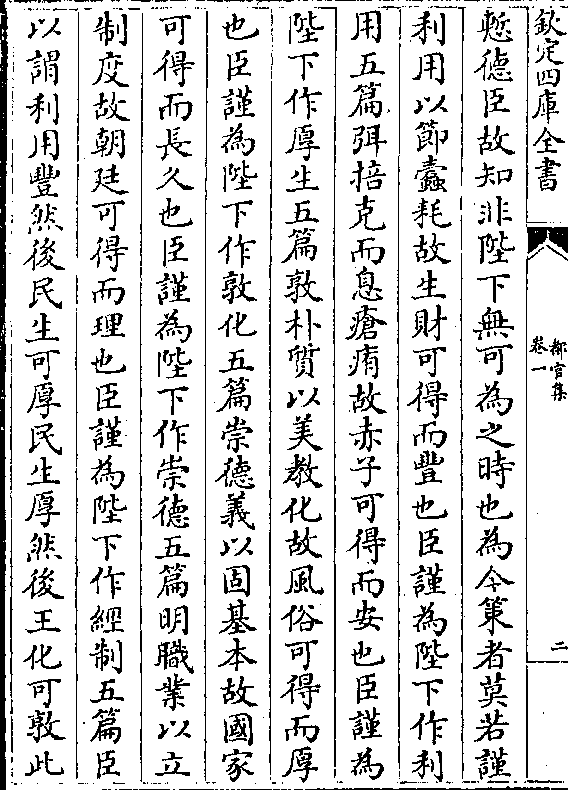 欽定四庫全書
都官集
卷一
二
慙德臣故知非陛下無可為之時也為今策者莫若謹
利用以節蠧耗故生財可得而豐也臣謹為陛下作利
用五篇弭掊克而息瘡痏故赤子可得而安也臣謹為
陛下作厚生五篇敦朴質以美教化故風俗可得而厚
也臣謹為陛下作敦化五篇崇德義以固基本故國家
可得而長久也臣謹為陛下作崇德五篇明職業以立
制度故朝廷可得而理也臣謹為陛下作經制五篇臣
以謂利用豐然後民生可厚民生厚然後王化可敦此